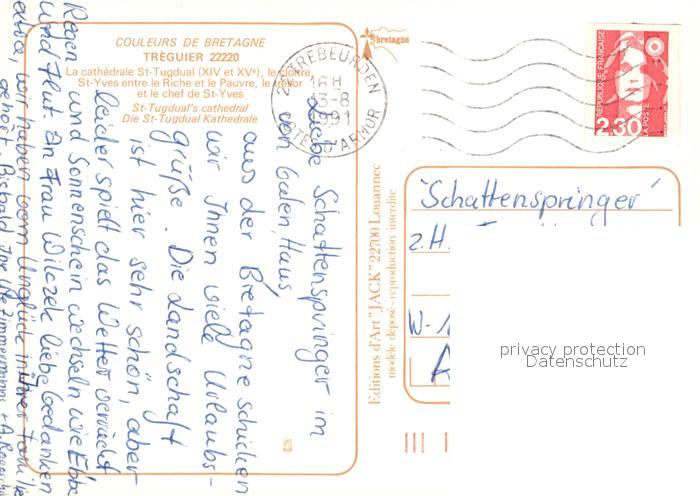 COULEURS DE BRETAGNE
TRÉGUIER 22220
La cathédrale St-Tugdual (XIV et XVe), le cloître,
St-Yves entre le Riche et le Pauvre, le trésor
et le chef de St-Yves
St-Tugdual's cathedral
Die St-Tugdual Kathedrale
bretagne
TREBEURDEN
16H
3-8
1991
COTES D'ARMOR
REPUBLIQUE FRANÇAISE
2,30
LA POSTE
Editions d'Art "JACK" 22700 Louannec
modèle déposé - reproduction interdite
Liebe Schattenspringer im
von Galen Haus,
aus der Bretagne schicken
wir Ihnen viele Urlaubs-
grüße. Die Landschaft
ist hier sehr schön, aber
leider spielt das Wetter verrückt
und Sonnenschein wechseln wie Ebbe
Regen
und Flut. An Frau Wilczek liebe Gedanken
wir haben vom Unglück in Ihrer Familie
gehört. Bis bald Ihre Ute Zimmermann +
'Schattenspringer'
z.H.
W-1
A
privacy protection
Datenschutz